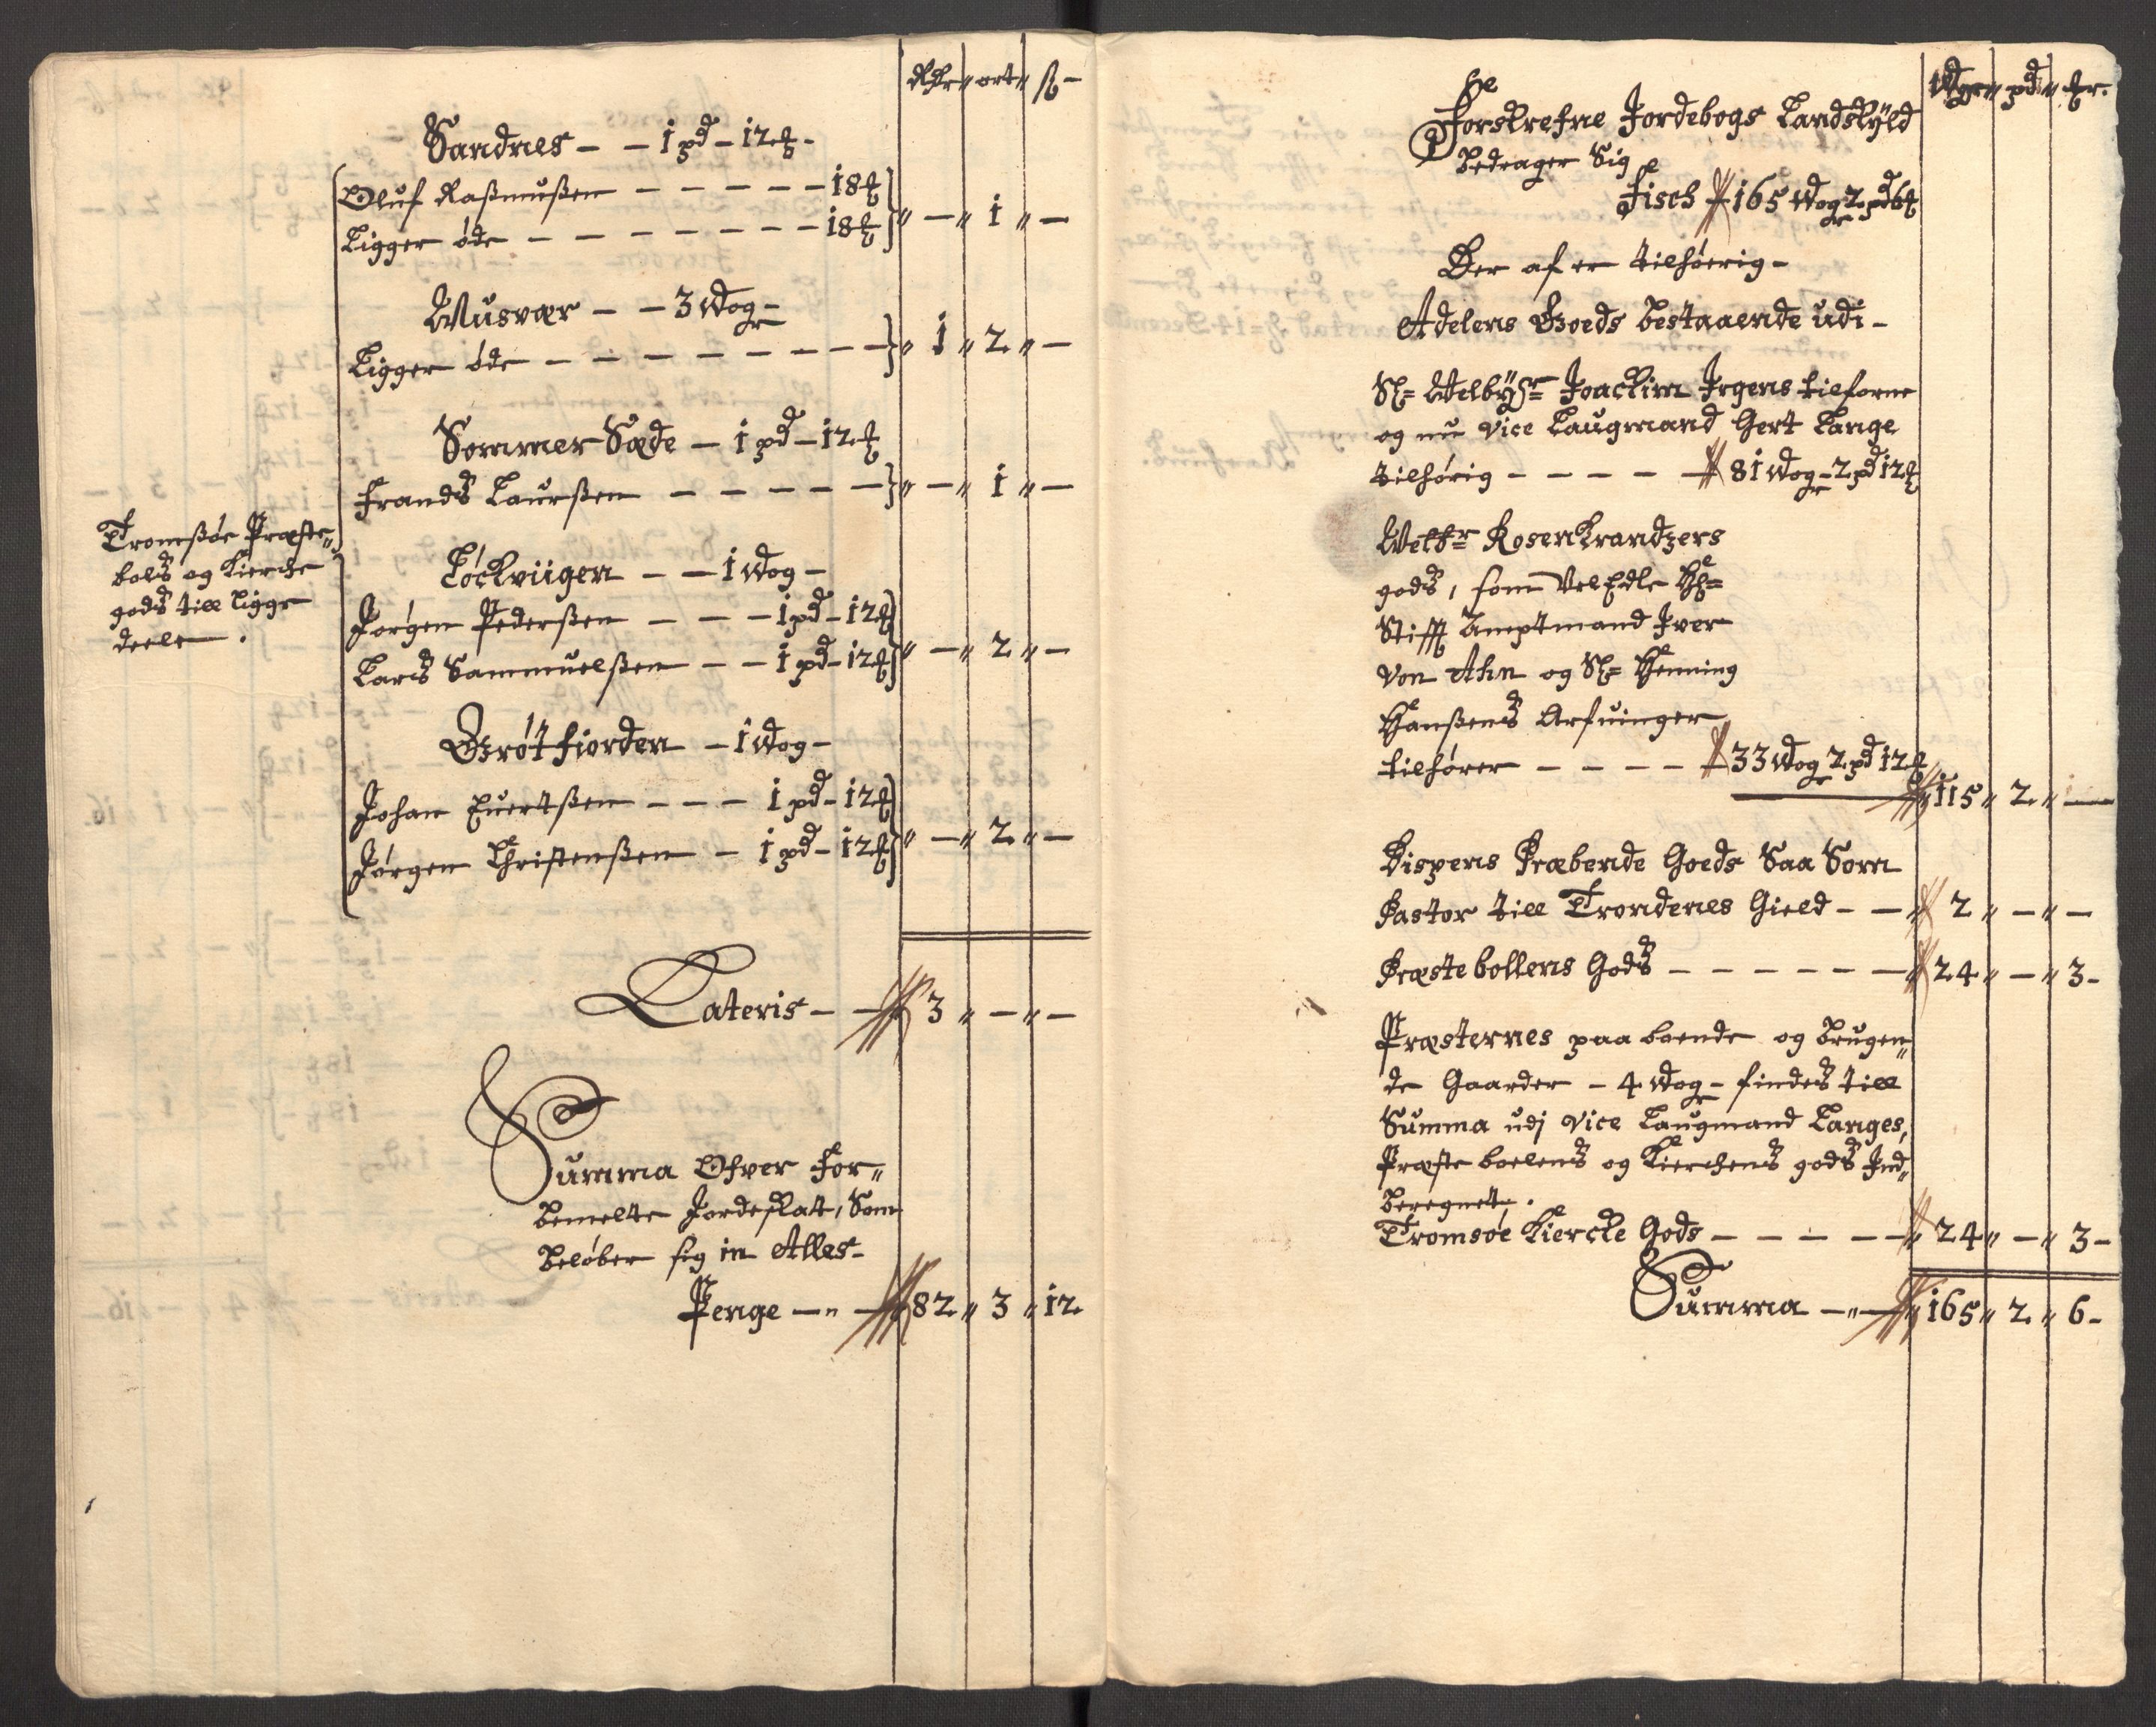 Rdr " ort " ß -
Sandnes - - 1 pd - 12 ℔ -
Oluf Rasmußen - - - - - 18 ℔
Ligger øde - - - - - - - 18 ℔ " - " 1 " -
Musvær - - 3 Wog -
Ligger øde - - - - - - - - - " 1 " 2 " -
Sommer Sæde - 1 pd - 12 ℔
Frands Laurßen - - - - - " - " 1 " -
Tromsøe Præste„
bols og Kierche
gods till Ligge
deele .
Løckviigen - - 1 Wog -
Jørgen Pederßen - - - 1 pd - 12 ℔
Lars Sammuelßen - - 1 pd - 12 ℔ " - " 2 " -
Grøtfiorden - 1 Wog -
Johan Evertßen - - - 1 pd - 12 ℔
Jørgen Christenßen - 1 pd - 12 ℔ " - " 2 " -
Lateris - - 3 " - " -
Summa Ofver For„
bemelte Jordeskat, Som
beløber sig in Alles -
Penge - " - 82 " 3 " 12
Wogr " pd " ℔r.
Forskrefne Jordebogs Landskyld
bedrager Sig
Fisch 165 Wogr 2 pd 6 ℔
Der af er tilhøerig -
Adelens Goeds bestaaende udi -
Sl= Welb: Hr= Joackim Irgens tilforne
og nu vice Laugmand Gert Lange
tilhørig - - - - 81 Wogr - 2 pd 12 ℔
Welbr Rosenkrandzers
gods, som Vel Edle Hr=
Stifft Amptmand Iver
von Ahn og Sl= Henning
Hanßens Arfvinger
tilhører - - - - 33 Wogr 2 pd 12 ℔
" 115 " 2 " -
Bispens Præbende Goeds Saa Som
Pastor till Trondenes Gield - - " 2 " - " -
Præstebollens Gods - - - - - - " 24 " - " 3 -
Præsternes paa boende og Brugen„
de Gaarder - 4 Wogr - findes till
Summa udj vice Laugmand Langes,
Præste boelens og Kierchens gods Ind„
beregnet .
Tromsøe Kiercke Gods - - - - - " 24 " - " 3 -
Summa - " - " 165 " 2 " 6 -